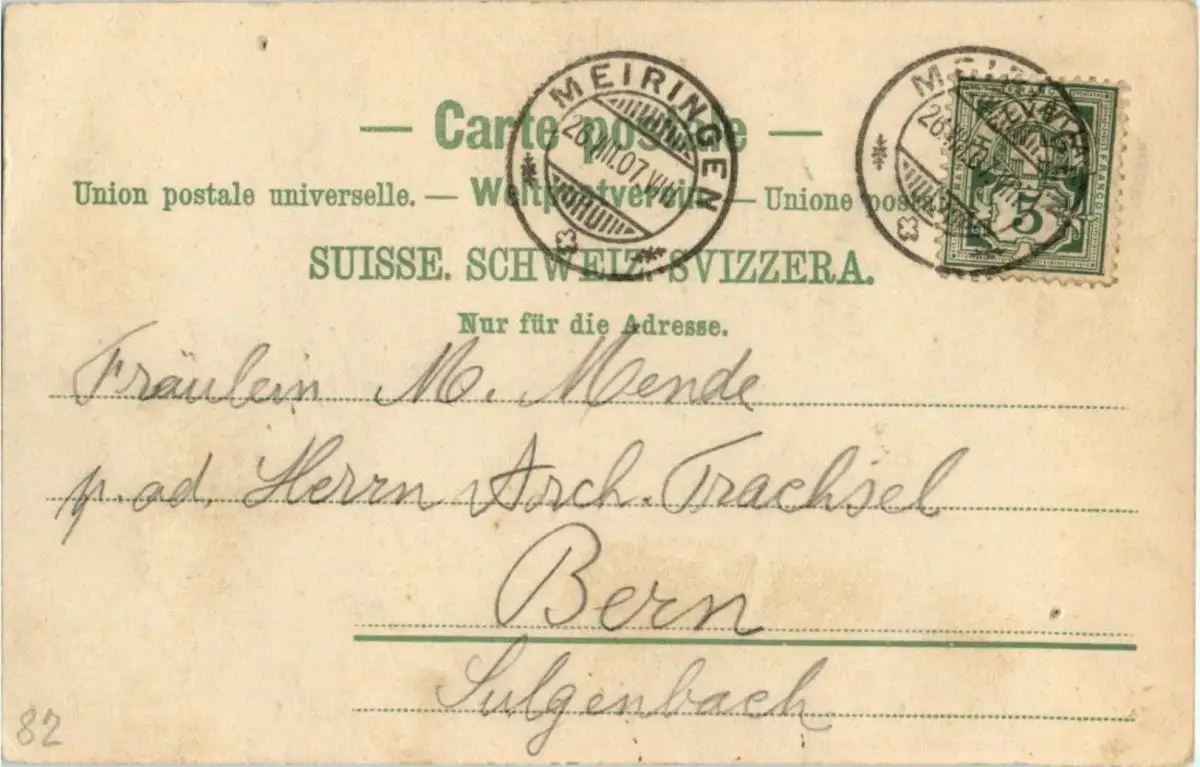 — Carte postale —
Union postale universelle. — Weltpostverein. — Unione postale
SUISSE. SCHWEIZ. SVIZZERA.
Nur für die Adresse.
MEIRINGEN
26.VIII.07.VIII
MEIRINGEN
26.VIII.07.VIII
HELVETIA
FRANCO
5
Fräulein M. Mende
p. ad. Herrn Arch. Trachsel
Bern
Sulgenbach
82